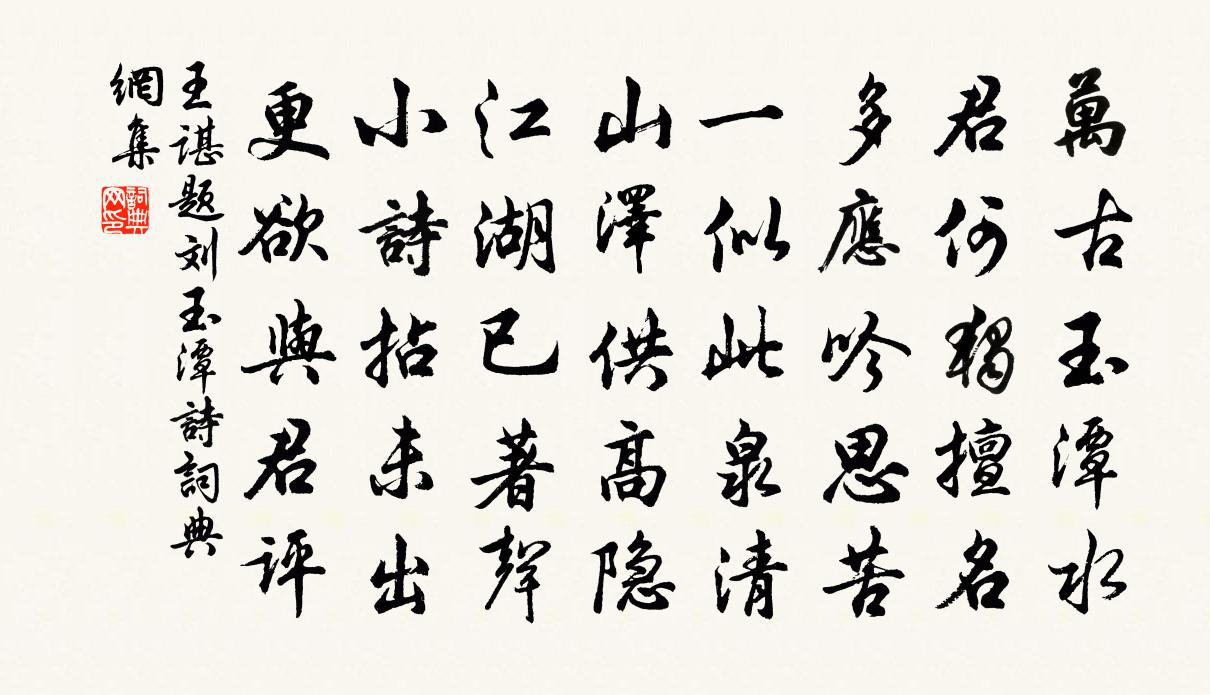 萬古玉潭水
君何獨擅名
多應吟思苦
一似此泉清
山澤供高隐
江湖已著聲
小詩拈未出
更欲與君評
王諶题刘玉潭詩詞典
網集
詞典
网印